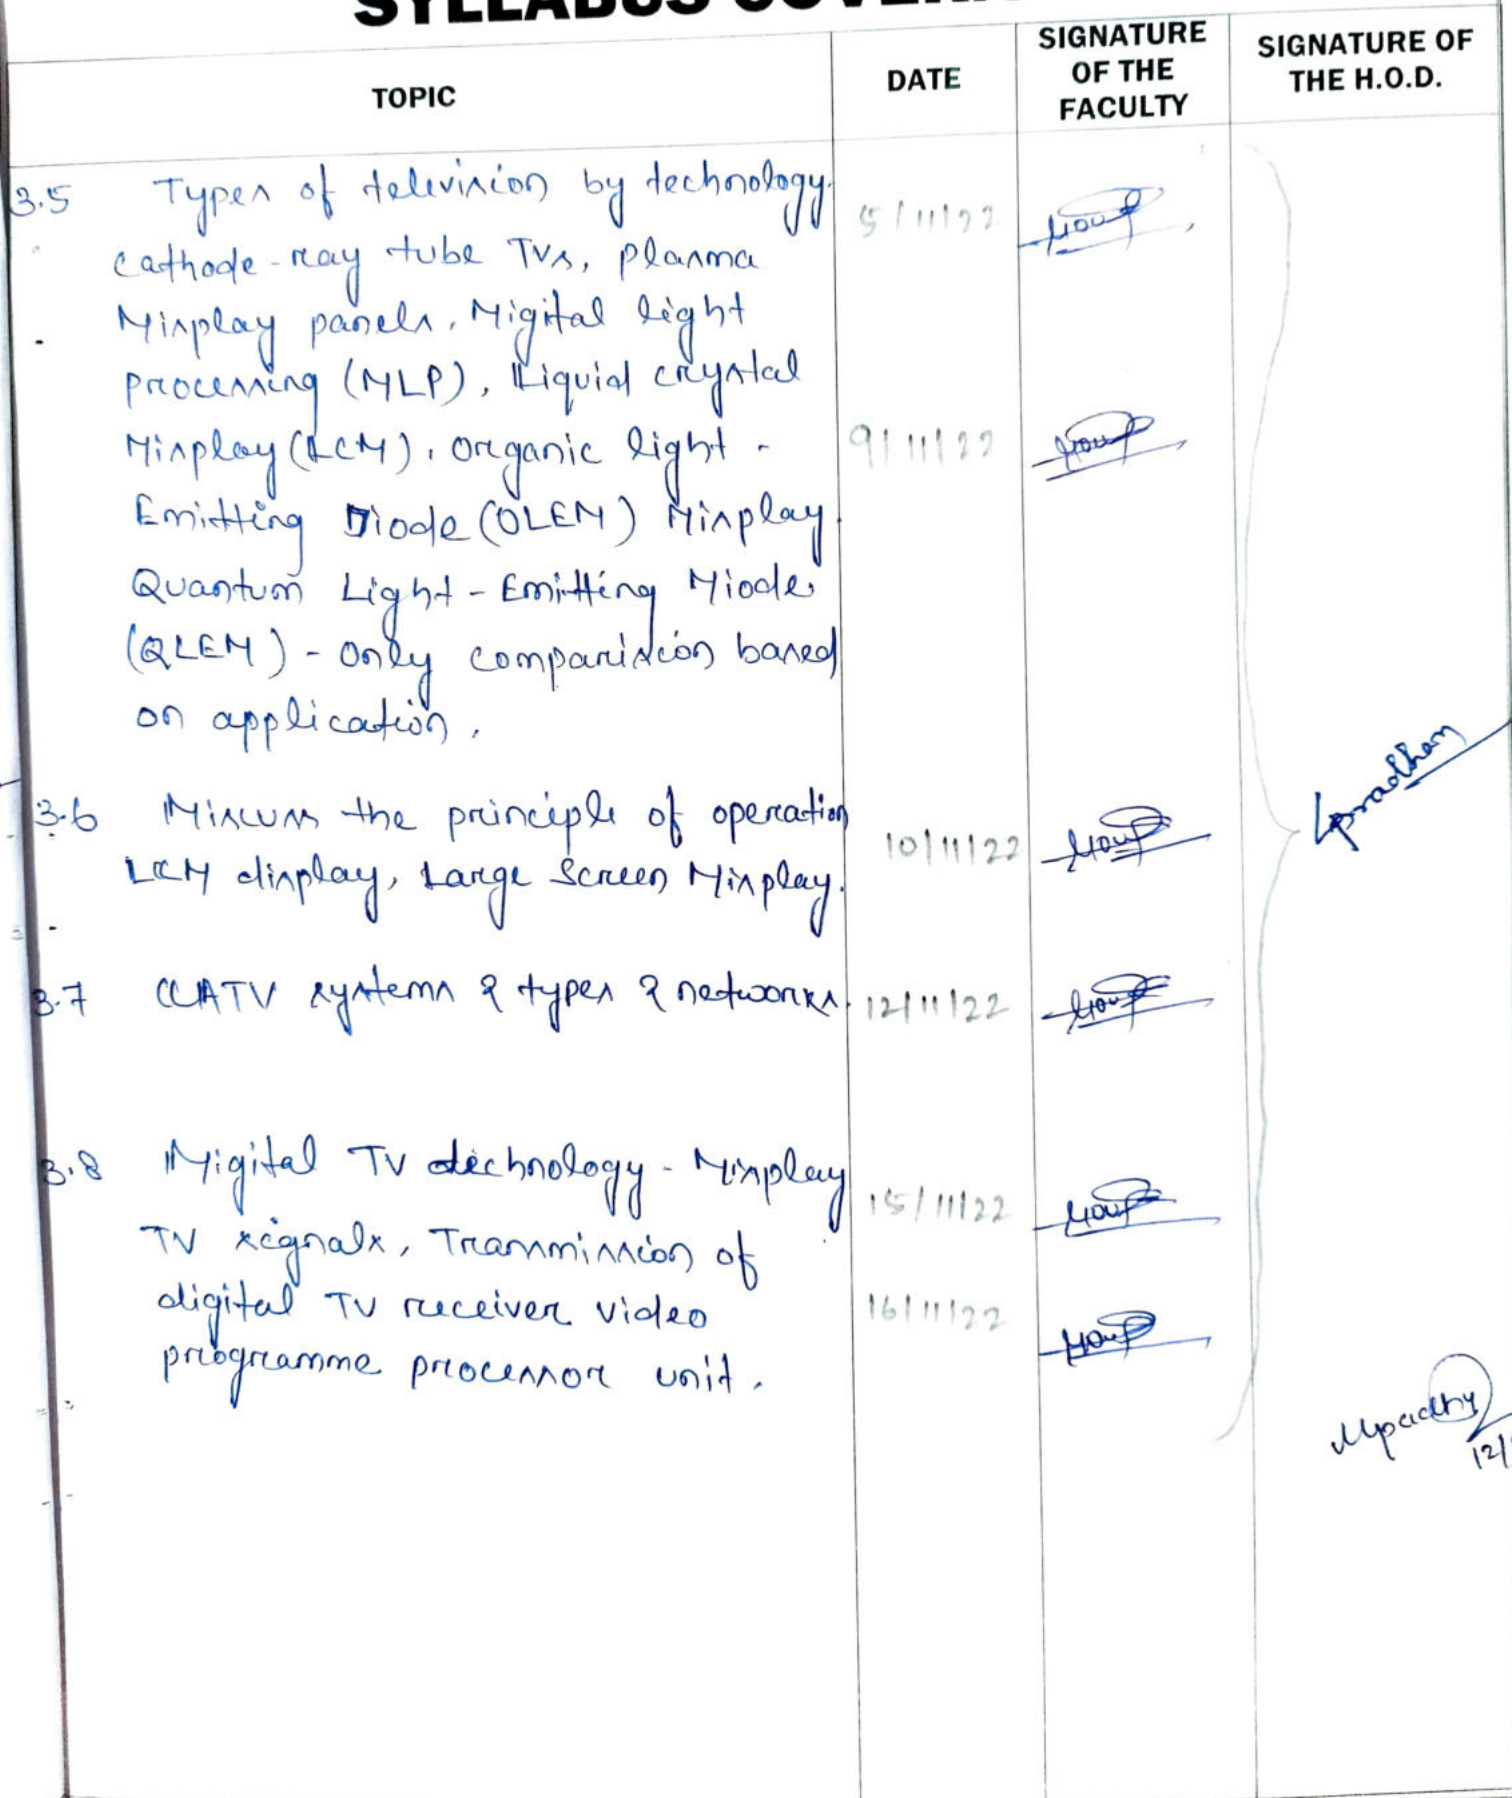 SYLLABUS COVER
TOPIC
DATE
SIGNATURE OF THE FACULTY
SIGNATURE OF THE H.O.D.
3.5 Types of television by technology. 5/11/22
cathode-ray tube TVs, plasma
Display panels, Digital light
processing (DLP), Liquid crystal
Display (LCD), Organic light - 9/11/22
Emitting Diode (OLED) Display
Quantum Light-Emitting Diode
(QLED) - only comparision based
on application.
3.6 Discuss the principle of operation 10/11/22
LCD display, Large Screen Display.
3.7 CCATV systems & types & networks. 12/11/22
3.8 Digital TV technology - Display 15/11/22
TV signals, Transmission of
digital TV receiver video 16/11/22
programme processor unit.
pradhan
12/